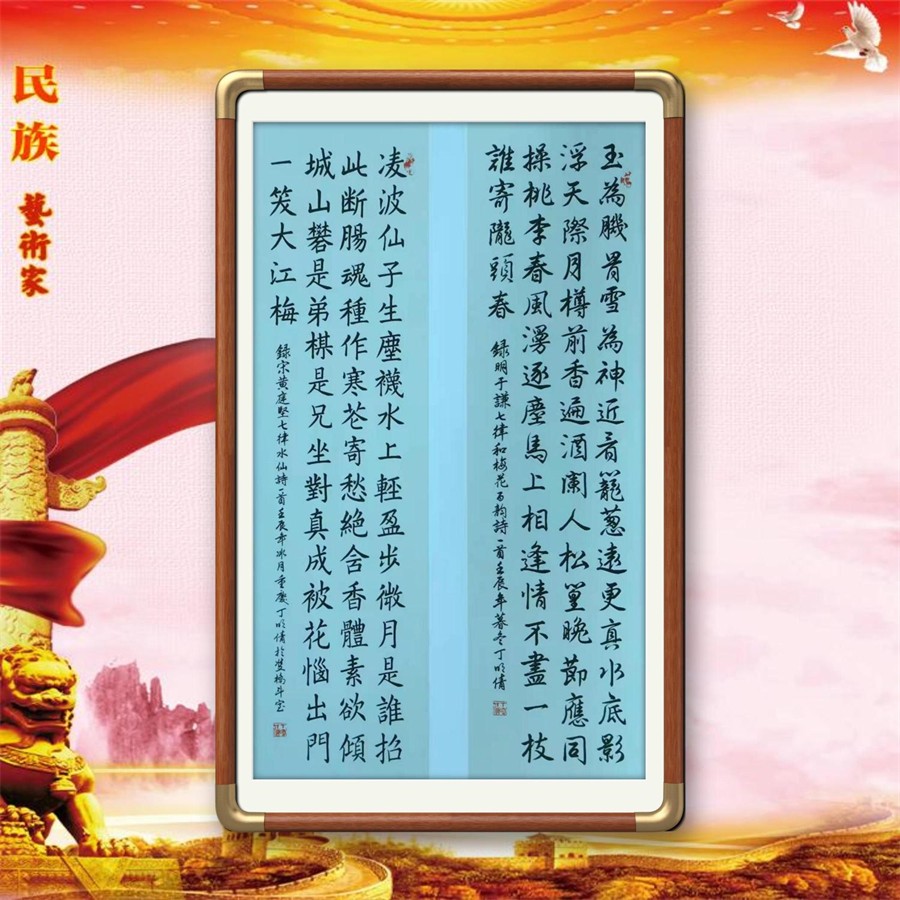 民族
藝術家
玉為肌骨雪為神近看籠蔥遠更真水底影
浮天際月樽前香遍酒闌人松篁晚節應同
操桃李春風漫逐塵馬上相逢情不盡一枝
誰寄隴頭春
錄明于謙七律和梅花百韵詩一首壬辰年暮冬丁明倩
凌波仙子生塵襪水上輕盈步微月是誰招
此断腸魂種作寒花寄愁絕含香體素欲傾
城山礬是弟梅是兄坐對真成被花惱出門
一笑大江梅
錄宋黃庭堅七律水仙詩一首壬辰年冰月重慶丁明倩於橋斗室